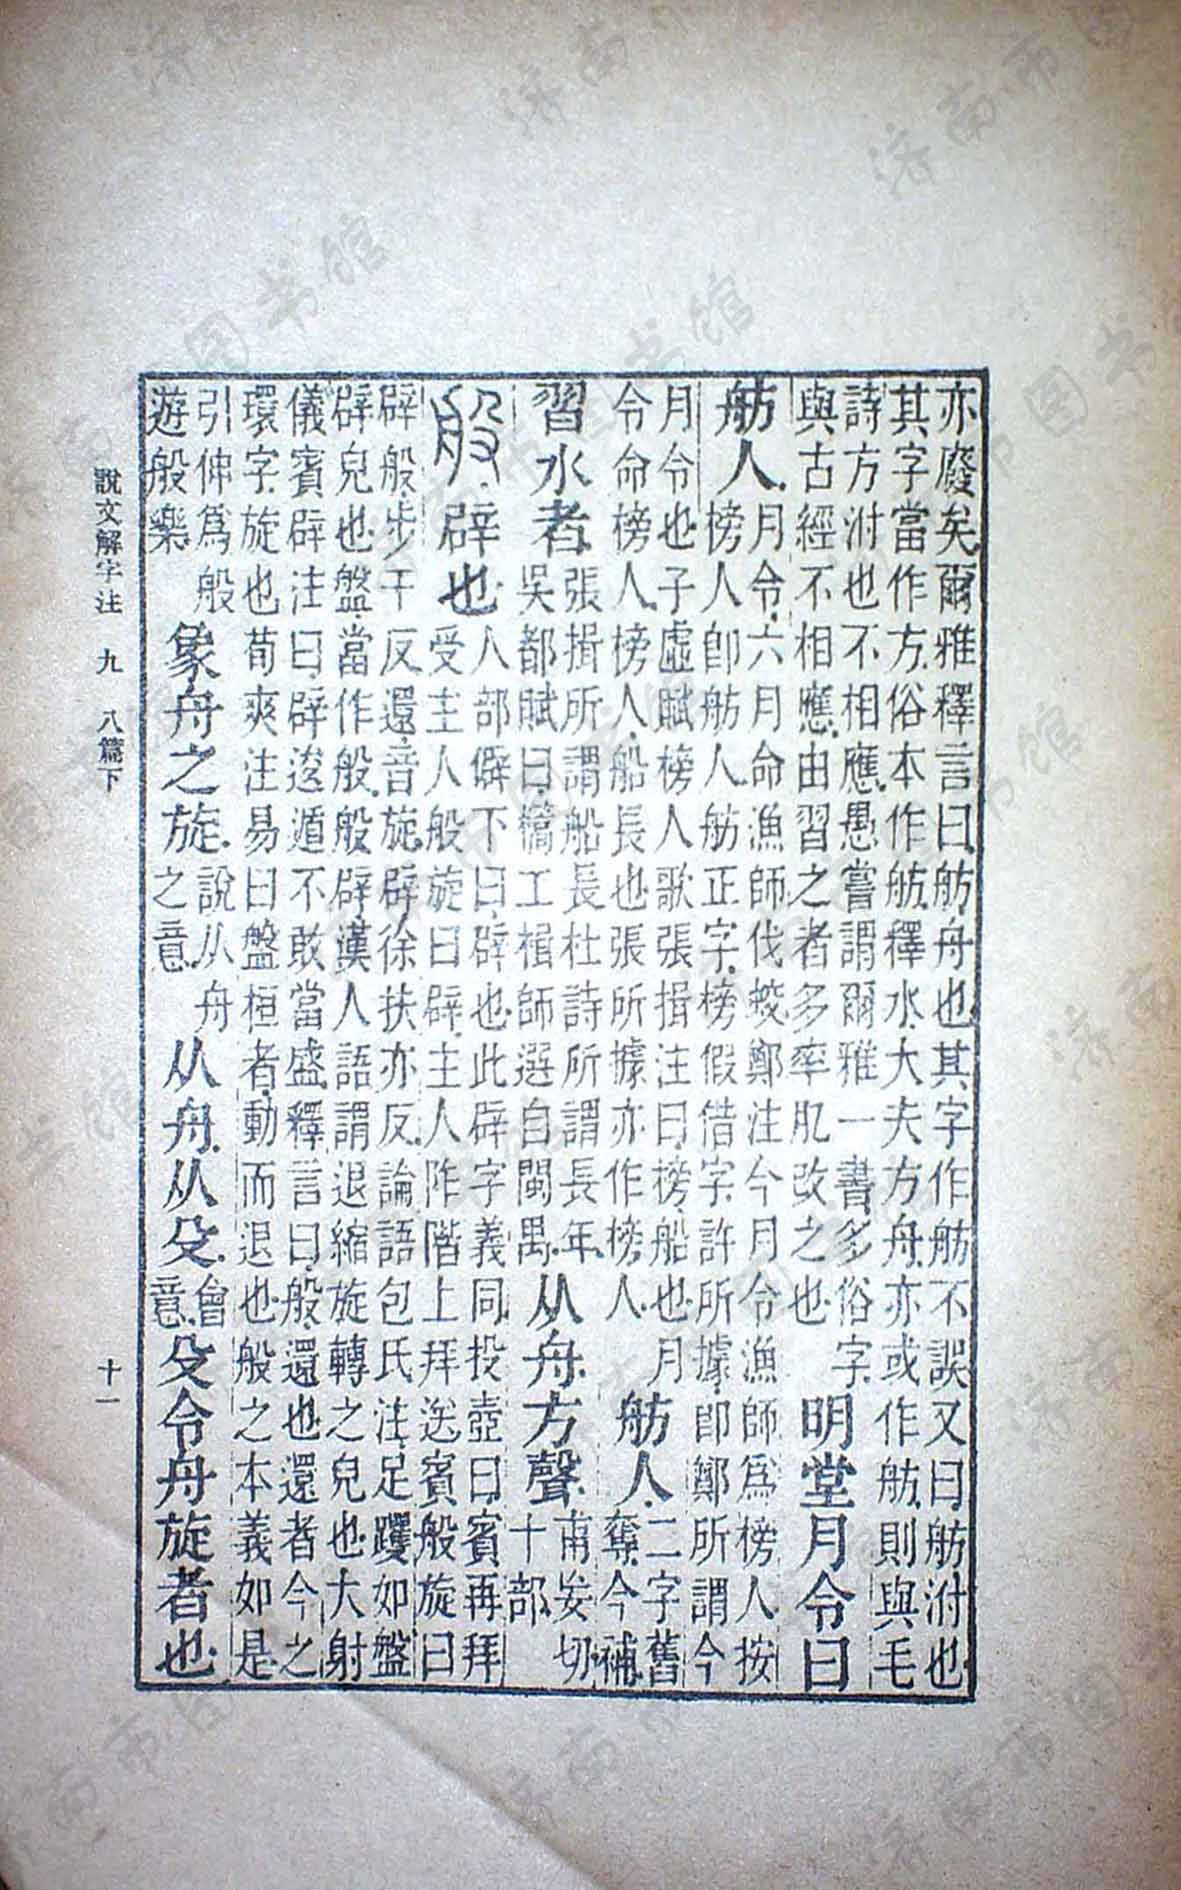 亦廢矣爾雅釋言曰舫舟也其字作舫不誤又曰舫泭也
其字當作方俗本作舫釋水大夫方舟亦或作舫則與毛
詩方泭也不相應愚嘗謂爾雅一書多俗字
與古經不相應由習之者多率肊改之也
明堂月令曰
舫人
月令六月命漁師伐蛟鄭注今月令漁師爲榜人按
榜人卽舫人舫正字榜假借字許所據卽鄭所謂今
月令也子虛賦榜人歌張揖注曰榜船也月
令命榜人榜人船長也張所據亦作榜人
舫人
二字舊
奪今補
習水者
張揖所謂船長杜詩所謂長年
吳都賦曰篙工楫師選自閩禺
从舟方聲
甫妄切
十部
般辟也
人部僻下曰辟也此辟字義同投壺曰賓再拜
受主人般旋曰辟主人阼階上拜送賓般旋曰
辟般步干反還音旋辟徐扶亦反論語包氏注足躩如盤
辟皃也盤當作般般辟漢人語謂退縮旋轉之皃也大射
儀賓辟注曰辟逡遁不敢當盛釋言曰般還也還者今之
環字旋也荀爽注易曰盤桓者動而退也般之本義如是
引伸爲般
遊般樂
象舟之旋
說从舟
之意
从舟从殳
會
意
殳令舟旋者也
說文解字注 九 八篇下 十一
济南市图书馆